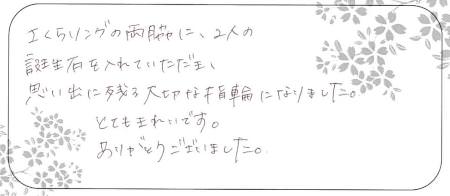 さくらリングの両脇に、2人の
誕生石を入れていただき、
思い出に残る大切な指輪になりました。
とてもきれいです。
ありがとうございました。